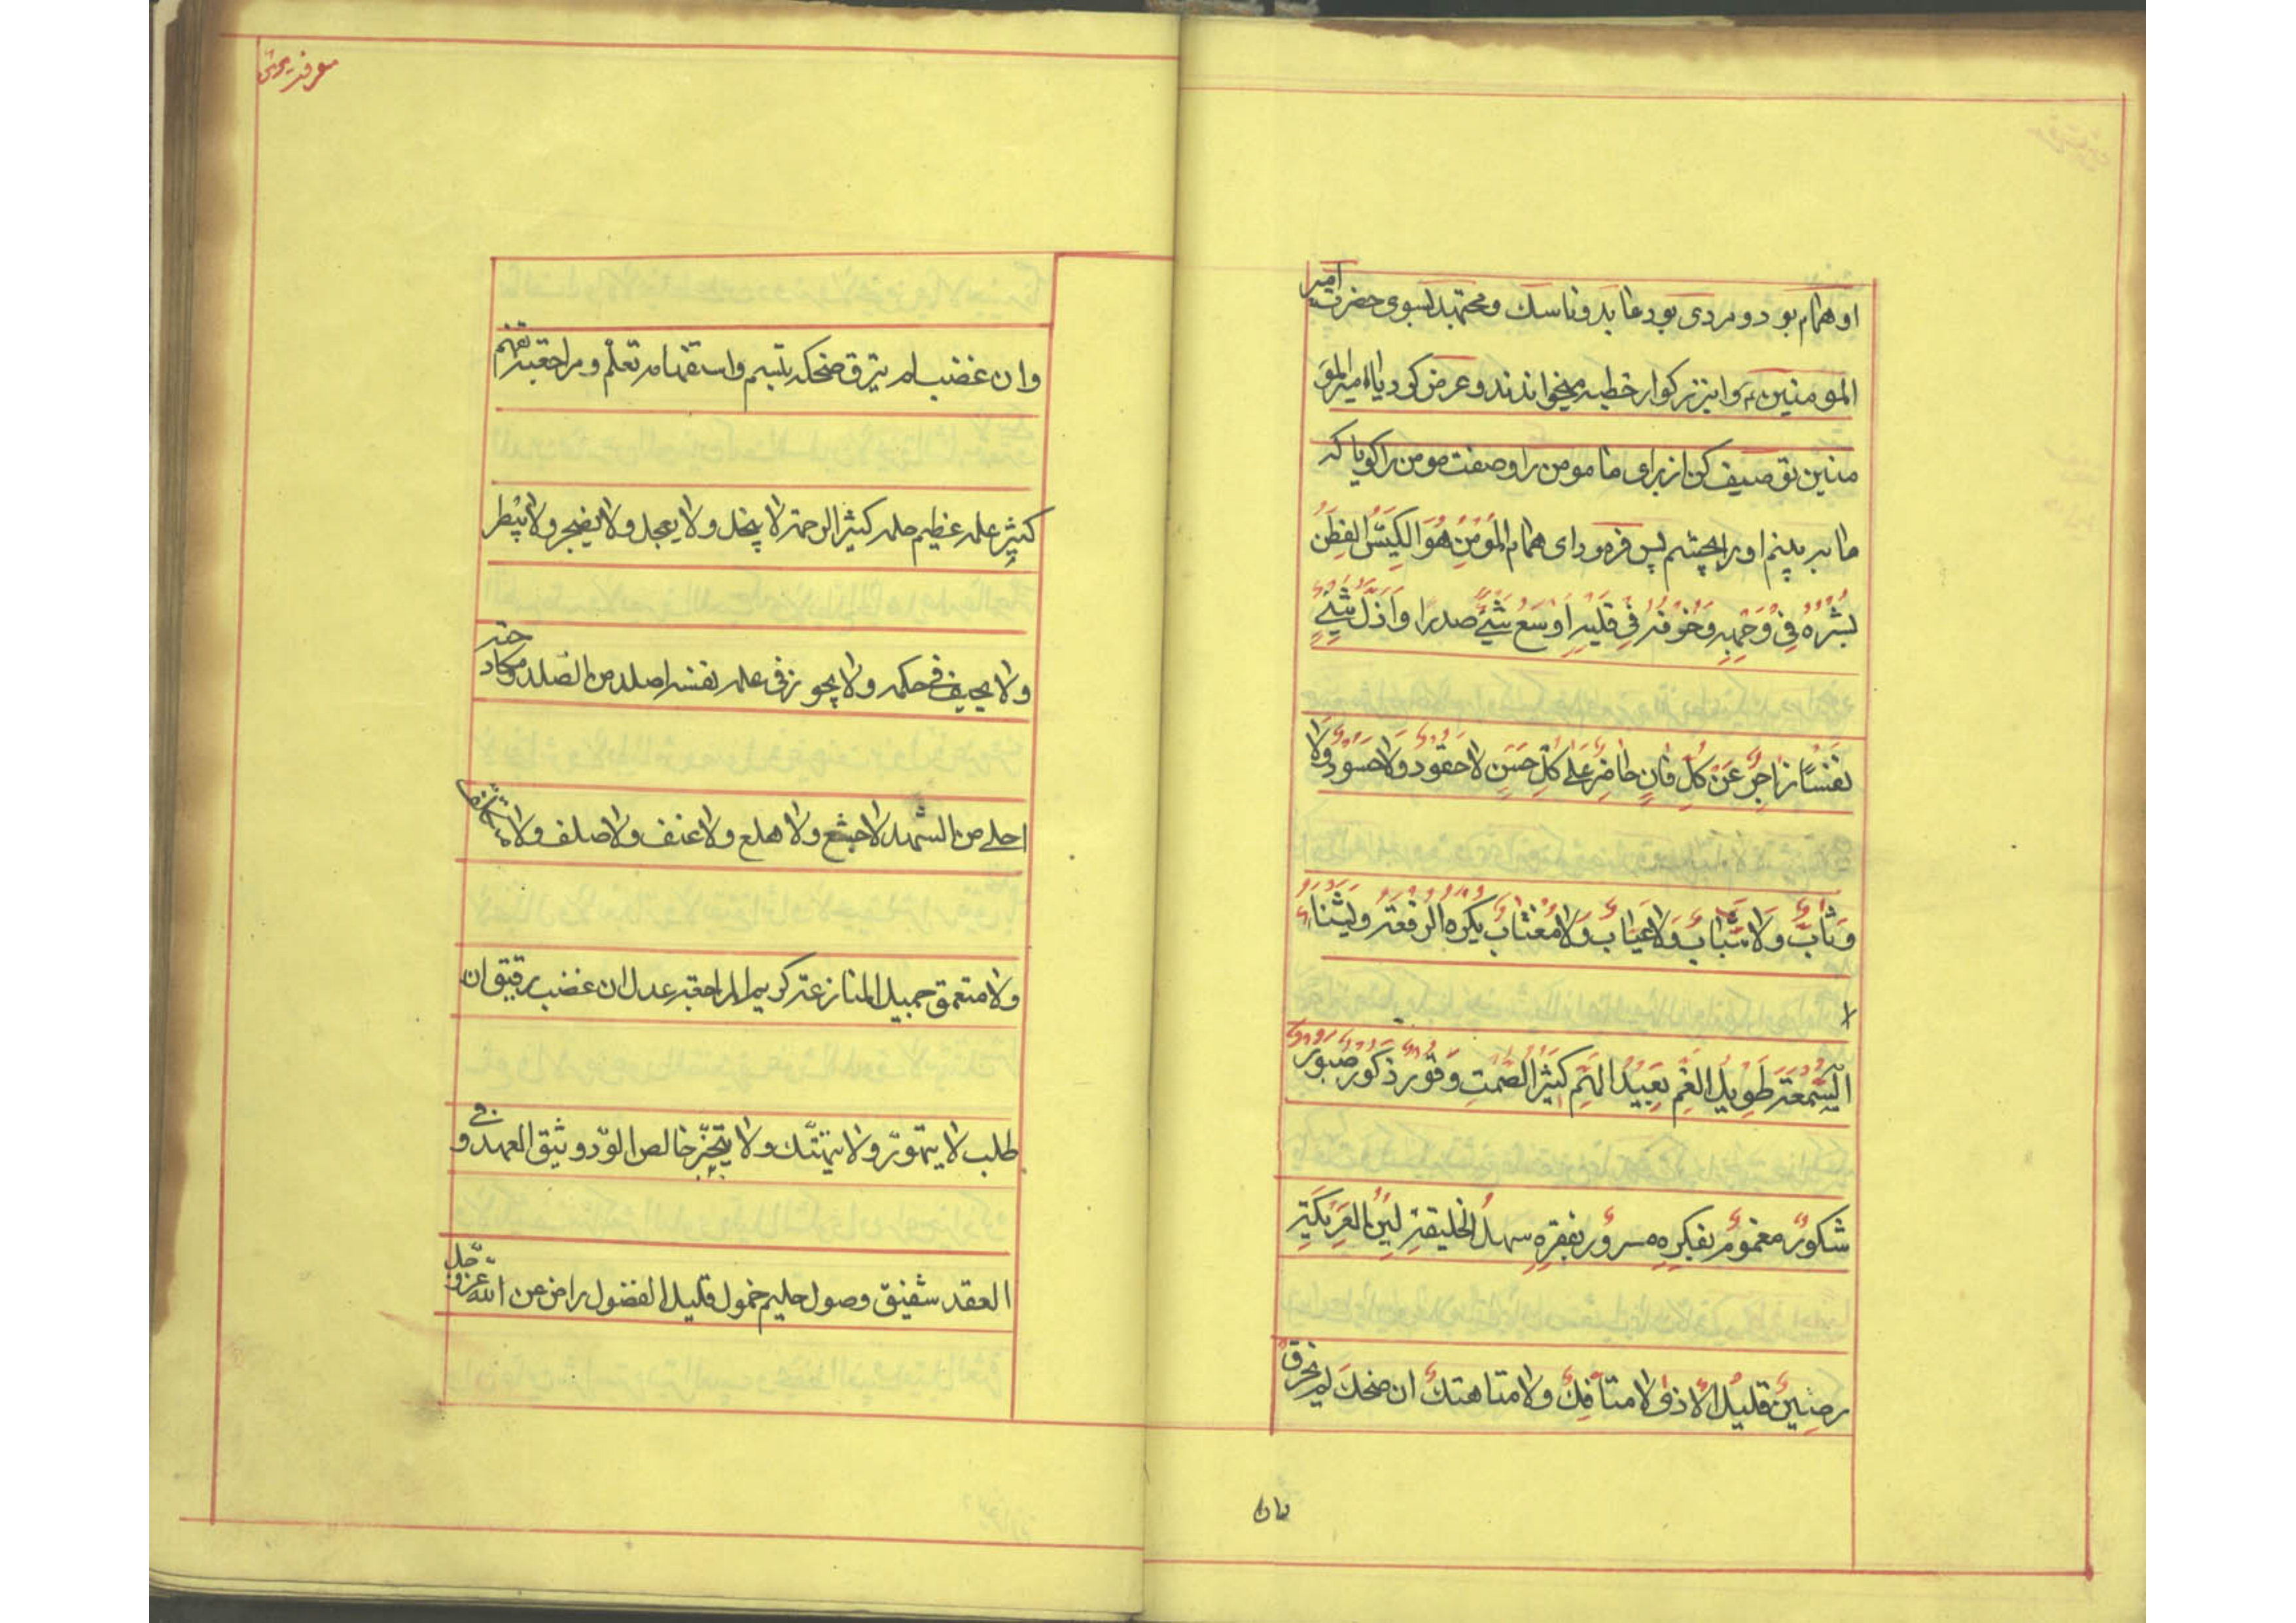 او همام بود و مردی بود عابد و ناسک و مجتهد بسوی حضرت امیر
المومنین ع و انبزرکوار خطبه میخواندند و عرض کرد یا امیر المؤ
منین توصیف کن از برای ما مومن را و صفت مومن را کویا که
ما بر بینم او را بچشم پس فرمود ای همام المُؤمِنُ هُوَ الکَیِّسُ الفَطِنُ
بُشْرُهُ فِی وَجْهِهِ وَ خَوْفُهُ فِی قَلْبِهِ اَوْسَعُ شَیْئٍ صدرًا وَ اَذَلُّ شَیْئٍ
نَفْسًا زاجِرٌ عَنْ کُلِّ فَانٍ حَاضِرٌ عَلَی کُلِّ حَسَنٍ لا حَقُودٌ وَلا حَسُودٌ وَلا
وَثَّابٌ وَلا سَبَّابٌ وَلا عَیَّابٌ وَلا مُغْتَابٌ یَکْرَهُ الرِّفْعَةَ وَ یَشْنَاءُ
السُّمْعَةَ طَوِیلُ الغَمِّ بَعِیدُ الهَمِّ کَثِیرُ الصَّمْتِ وَقُورٌ ذَکُورٌ صَبُورٌ
شَکُورٌ مَغْمُومٌ بِفِکْرِهِ مسرورٌ بِفَقْرِهِ سهلُ الخلیقةِ لَیِّنُ العَرِیکَةِ
رصینٌ قلیلُ الاذی لا متأفکٌ ولا متاهتکٌ ان ضحکَ لم یخرق
مان
معرفت یونس
وان غضب لم ینزق ضحکه تبسم واستفهامه تعلّم و مراجعته تفهم
کثیرٌ علمه عظیم حلمه کثیر الرحمة لا یبخل ولا یعجل ولا یضجر ولا یبطر
ولا یحیف فی حکمه ولا یجوز فی علمه نفسه اصلد من الصّلد و مکاد حته
احلی من الشهد لا جشع ولا هلع ولا عنف ولا صلف ولا متکلف
ولا متعمق جمیل المنازعة کریم المراجعة عدل ان غضب رقیق ان
طلب لا یتهوّر ولا یتهتّک ولا یتجبّر خالص الودّ و ثیق العهد و فی
العقد شفیق وصول حلیم خمول قلیل الفضول راض عن الله عزّ و جلّ